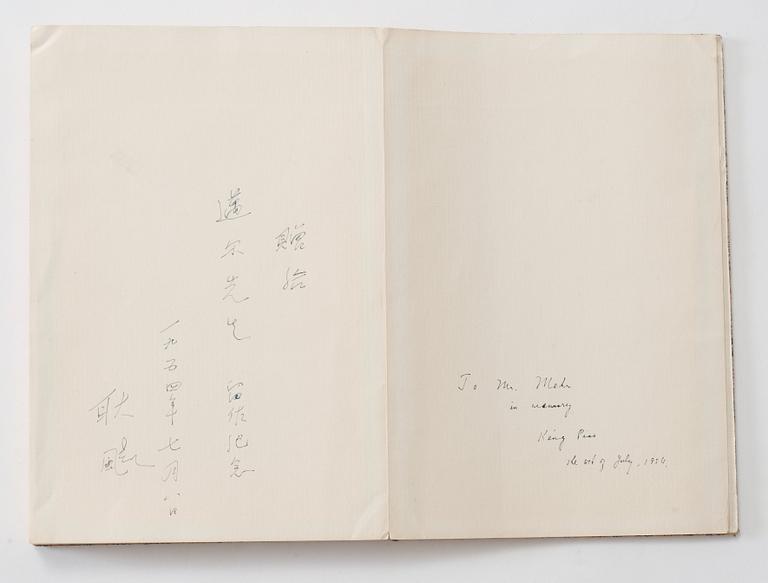 贈给
邁尔先生 留作纪念
一九五四年七月八日
耿飚
To Mr. Mehr
in memory
King Piao
the 8th of July, 1954.